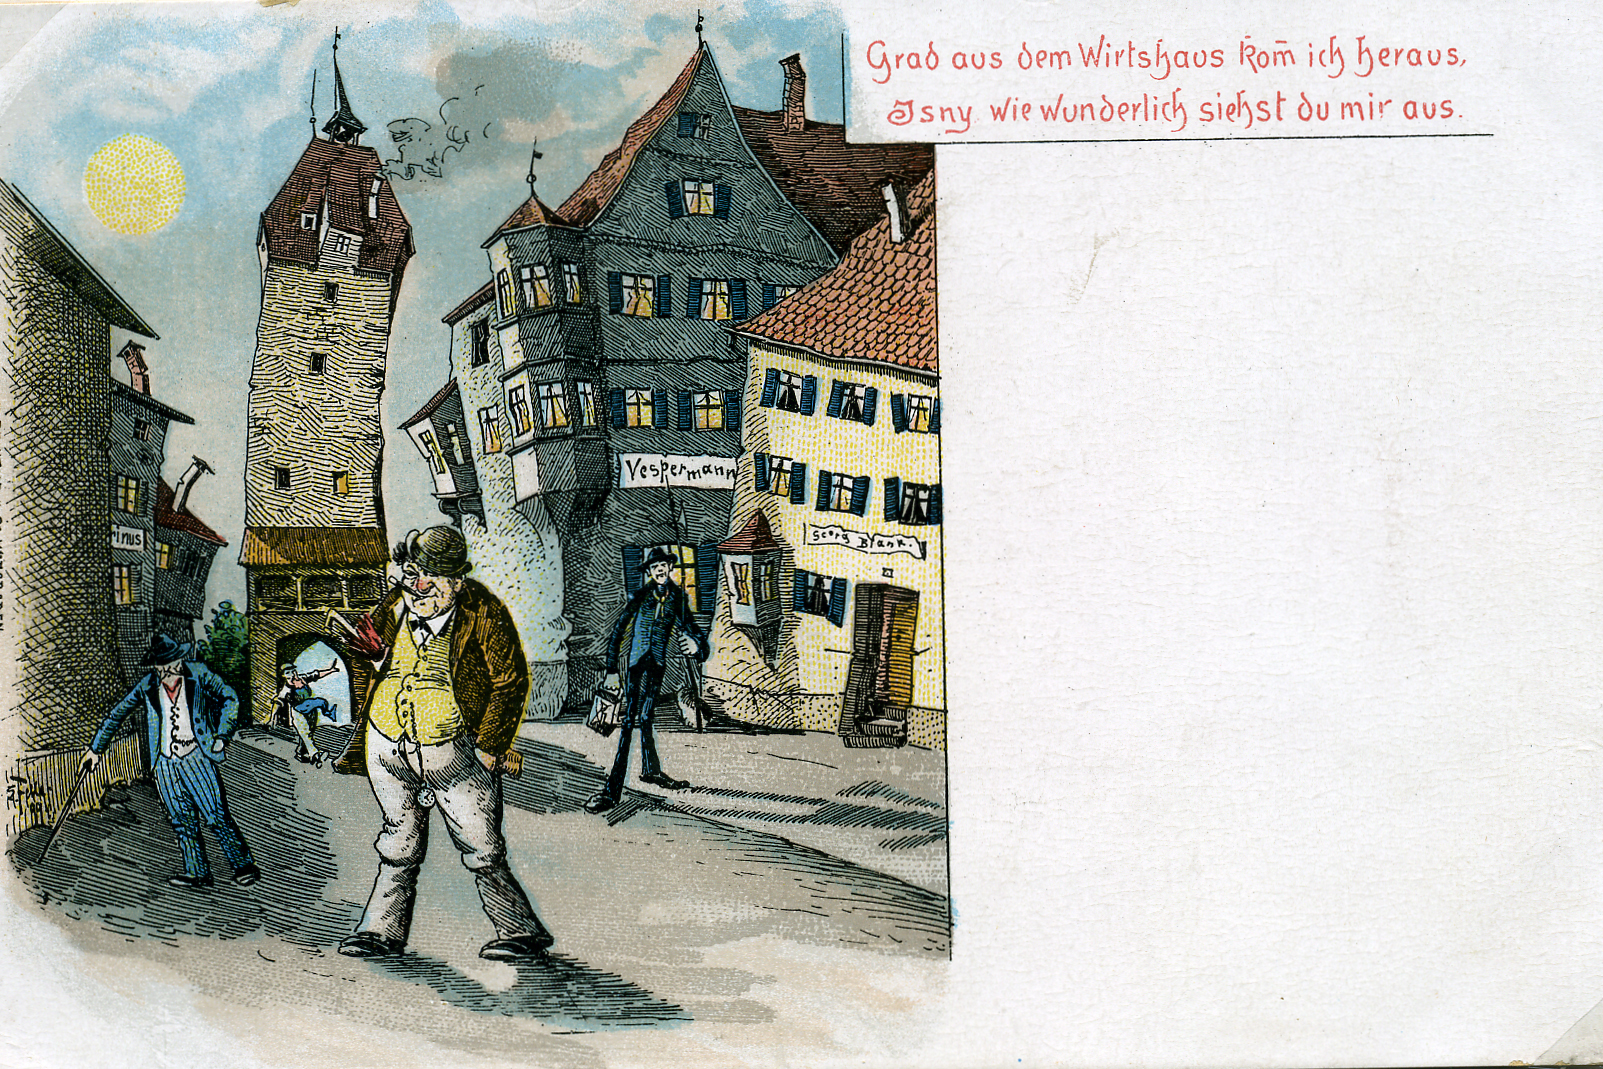 Grad aus dem Wirtshaus kom̄ ich heraus,
Isny wie wunderlich siehst du mir aus.
Vespermann
Georg Blank.
rinus